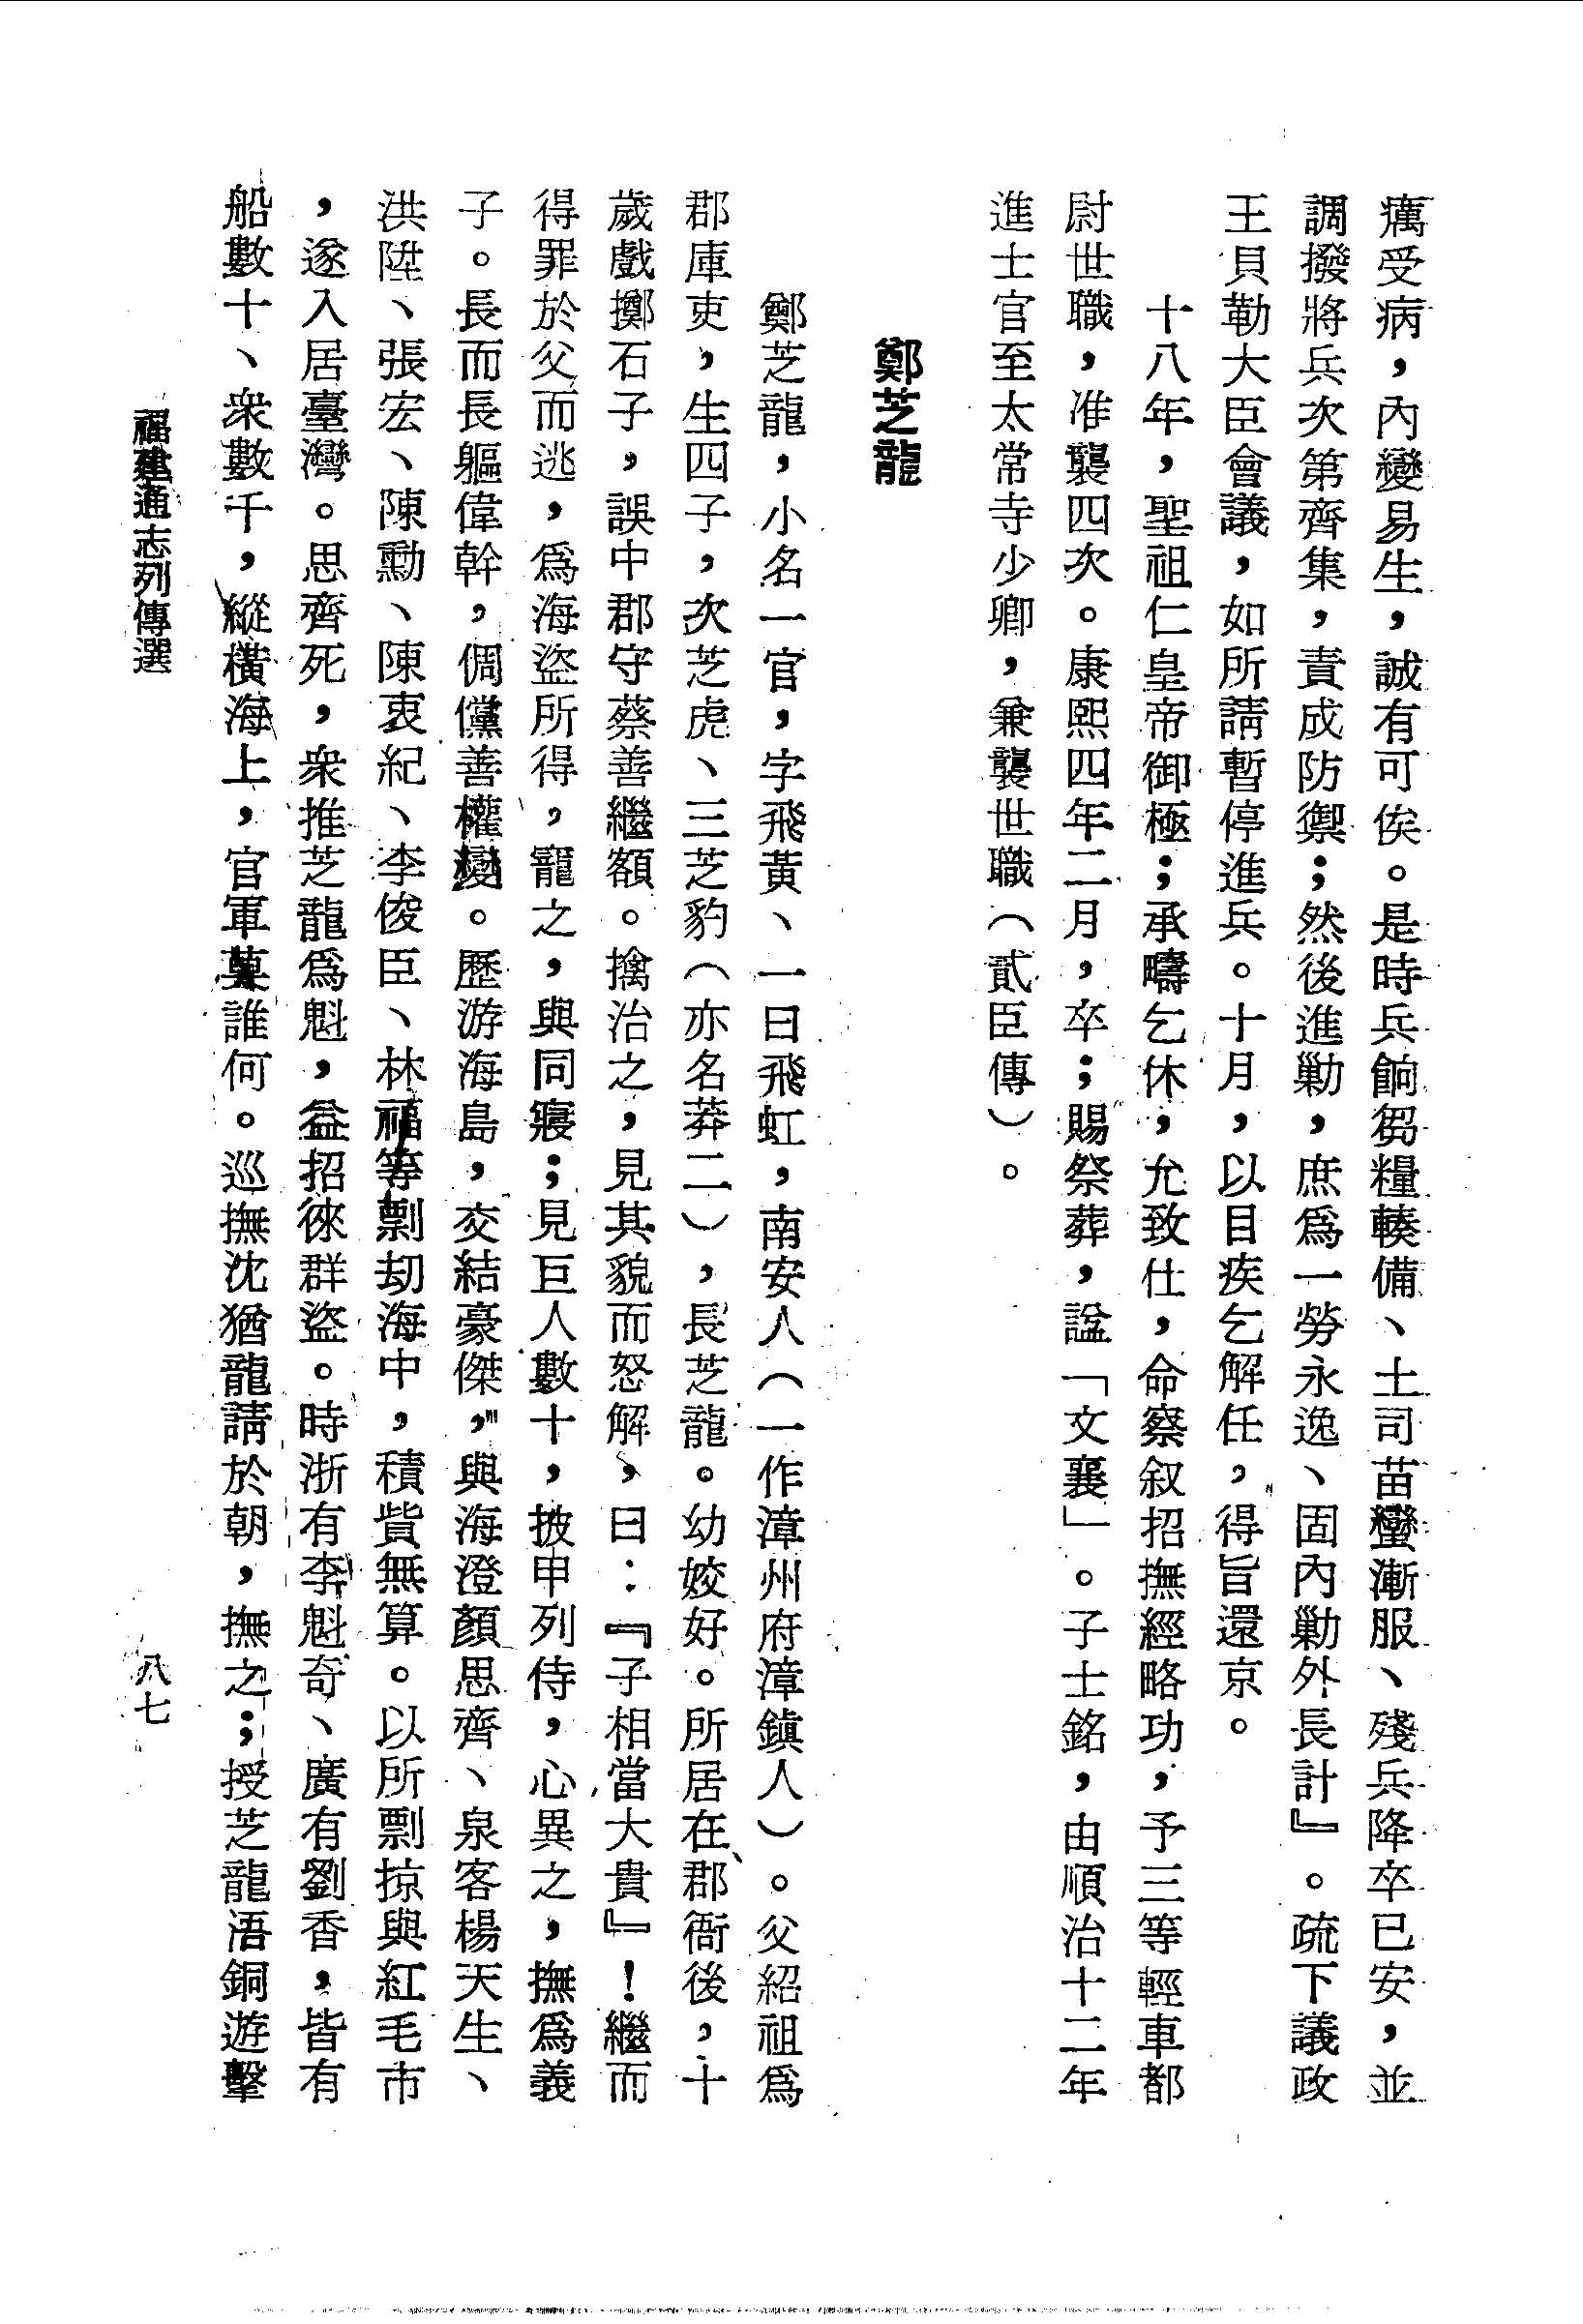 癘受病，內變易生，誠有可俟。是時兵餉芻糧輳備、土司苗蠻漸服、殘兵降卒已安，並
調撥將兵次第齊集，責成防禦；然後進勦，庶爲一勞永逸、固內勦外長計』。疏下議政
王貝勒大臣會議，如所請暫停進兵。十月，以目疾乞解任，得旨還京。
十八年，聖祖仁皇帝御極；承疇乞休，允致仕，命察叙招撫經略功，予三等輕車都
尉世職，准襲四次。康熙四年二月，卒；賜祭葬，諡「文襄」。子士銘，由順治十二年
進士官至太常寺少卿，兼襲世職（貳臣傳）。
鄭芝龍
鄭芝龍，小名一官，字飛黃、一曰飛虹，南安人（一作漳州府漳鎮人）。父紹祖爲
郡庫吏，生四子，次芝虎、三芝豹（亦名莽二），長芝龍。幼姣好。所居在郡衙後，十
歲戲擲石子，誤中郡守蔡善繼額。擒治之，見其貌而怒解，曰：『子相當大貴』！繼而
得罪於父而逃，爲海盜所得，寵之，與同寢；見巨人數十，披甲列侍，心異之，撫爲義
子。長而長軀偉幹，倜儻善權變。歷游海島，交結豪傑，與海澄顏思齊、泉客楊天生、
洪陞、張宏、陳勳、陳衷紀、李俊臣、林福等剽刧海中，積貲無算。以所剽掠與紅毛市
，遂入居臺灣。思齊死，衆推芝龍爲魁，益招徠群盜。時浙有李魁奇、廣有劉香，皆有
船數十、衆數千，縱橫海上，官軍莫誰何。巡撫沈猶龍請於朝，撫之；授芝龍浯銅遊擊
福建通志列傳選
八七